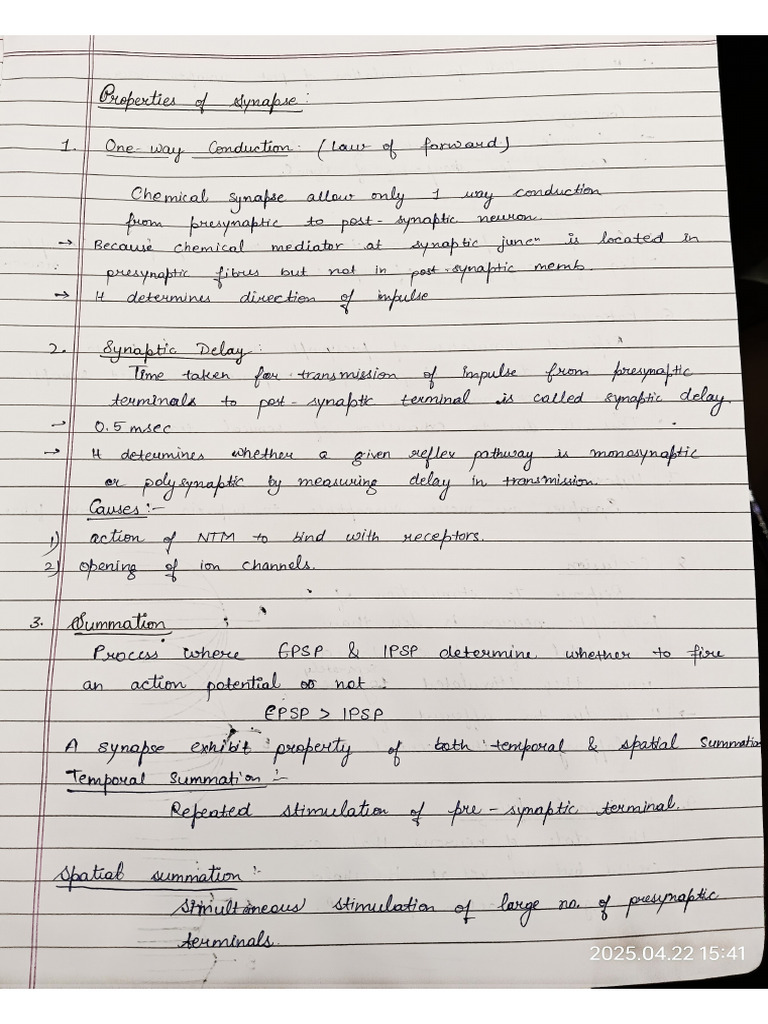 Properties of synapse :
1. One-way Conduction (Law of forward)
Chemical synapse allow only 1 way conduction
from presynaptic to post-synaptic neuron.
→ Because chemical mediator at synaptic juncⁿ is located in
presynaptic fibres but not in post-synaptic memb.
→ It determines direction of impulse
2. Synaptic Delay :
Time taken for transmission of impulse from presynaptic
terminals to post-synaptic terminal is called synaptic delay.
→ 0.5 msec
→ It determines whether a given reflex pathway is monosynaptic
or polysynaptic by measuring delay in transmission.
Causes :-
1) action of NTM to bind with receptors.
2) opening of ion channels.
3. Summation :
Process where EPSP & IPSP determine whether to fire
an action potential or not :
EPSP > IPSP
A synapse exhibit property of both temporal & spatial summation
Temporal Summation :-
Repeated stimulation of pre-synaptic terminal.
Spatial summation :-
Simultaneous stimulation of large no. of presynaptic
terminals.
2025.04.22 15:41